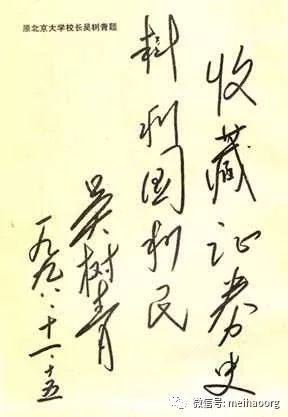 原北京大学校长吴树青题
收藏证券史
料利国利民
吴树青
一九九八·十一·十五
微信号: meihaoorg